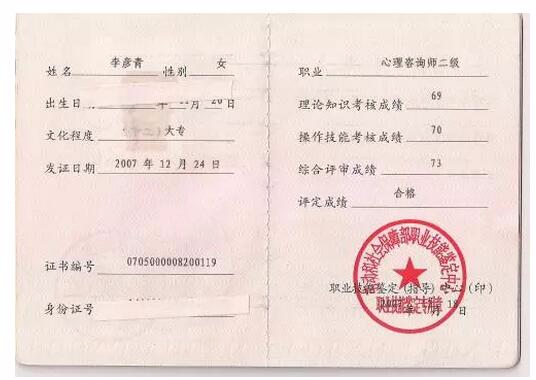 姓名 李彦青 性别 女
出生日 月 20日
文化程度 大专
发证日期 2007 年 12 月 24 日
证书编号 0705000008200119
身份证号
职业 心理咨询师二级
理论知识考核成绩 69
操作技能考核成绩 70
综合评审成绩 73
评定成绩 合格
劳动和社会保障部职业技能鉴定中心
职业技能鉴定(指导)中心(印)
职业技能鉴定专用章
2007 年 月 18 日